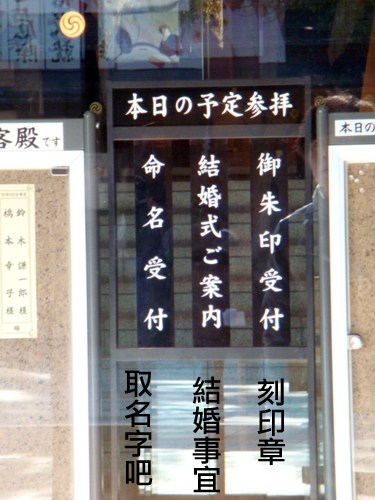 本日の予定参拝
御朱印受付
結婚式ご案内
命名受付
客殿です
本日の
鈴木謙一郎様
橋本幸子様
刻印章
結婚事宜
取名字吧